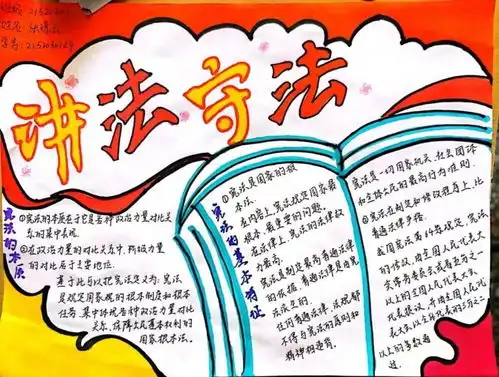 讲法守法
宪法的本质
①宪法的本质在于它是各种政治力量对比关
系的集中表现。
②在政治力量的对比关系中，阶级力量
的对比居于首要地位。
基于此可以把宪法定义为：宪法
是规定国家的根本制度和根本
任务、集中体现各种政治力量对比
关系、保障公民基本权利的
国家根本法。
宪法的基本特征
①宪法是国家的根
本法。
在内容上，宪法规定国家最
根本、最重要的问题。
在法律上，宪法的法律效
力最高。
宪法是制定普通法律
的依据，普通法律是由宪
法派生的。
任何普通法律、法规都
不得与宪法的原则和
精神相违背。
宪法是一切国家机关、社会团体
和全体公民的最高行为准则。
②宪法在制定和修改程序上，比
普通法律更严格。
我国宪法第64条规定，宪法
的修改，由全国人民代表大会
常务委员会或者五分之一
以上的全国人民代表大会
代表提议，并由全国人民代
表大会以全体代表的三分之二
以上的多数通
过。